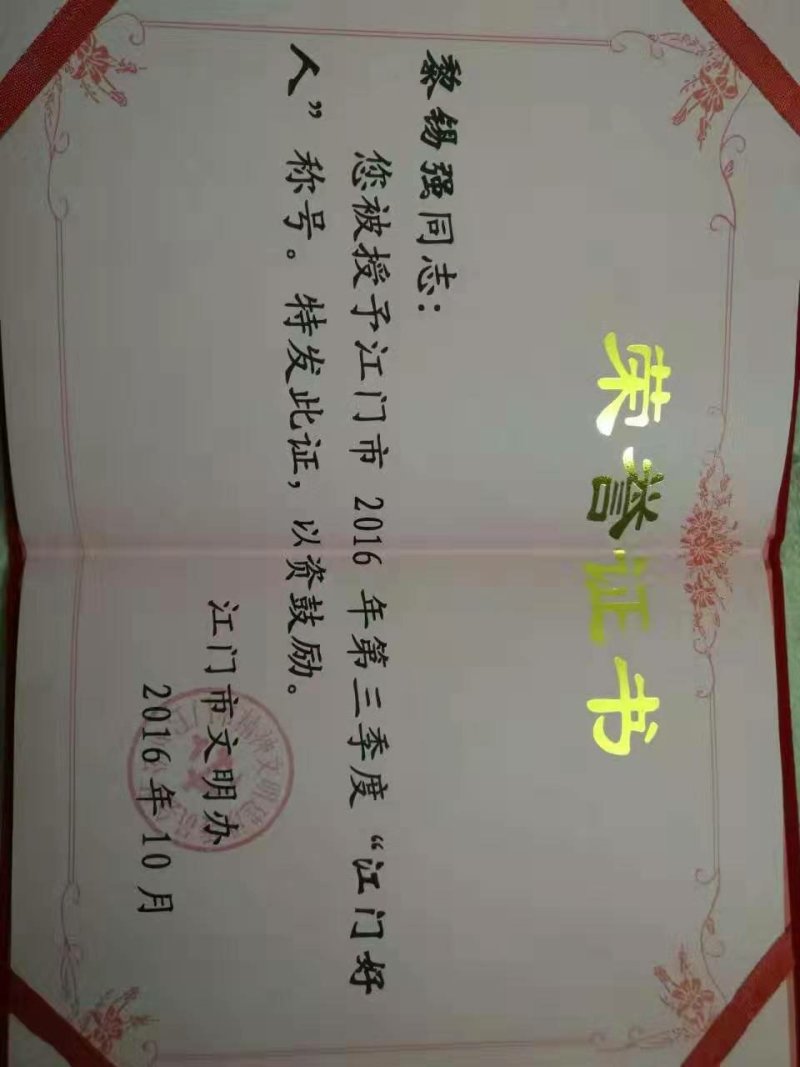 荣誉证书
黎锡强同志：
您被授予江门市2016年第三季度“江门好
人”称号。特发此证，以资鼓励。
江门市文明办
2016年10月